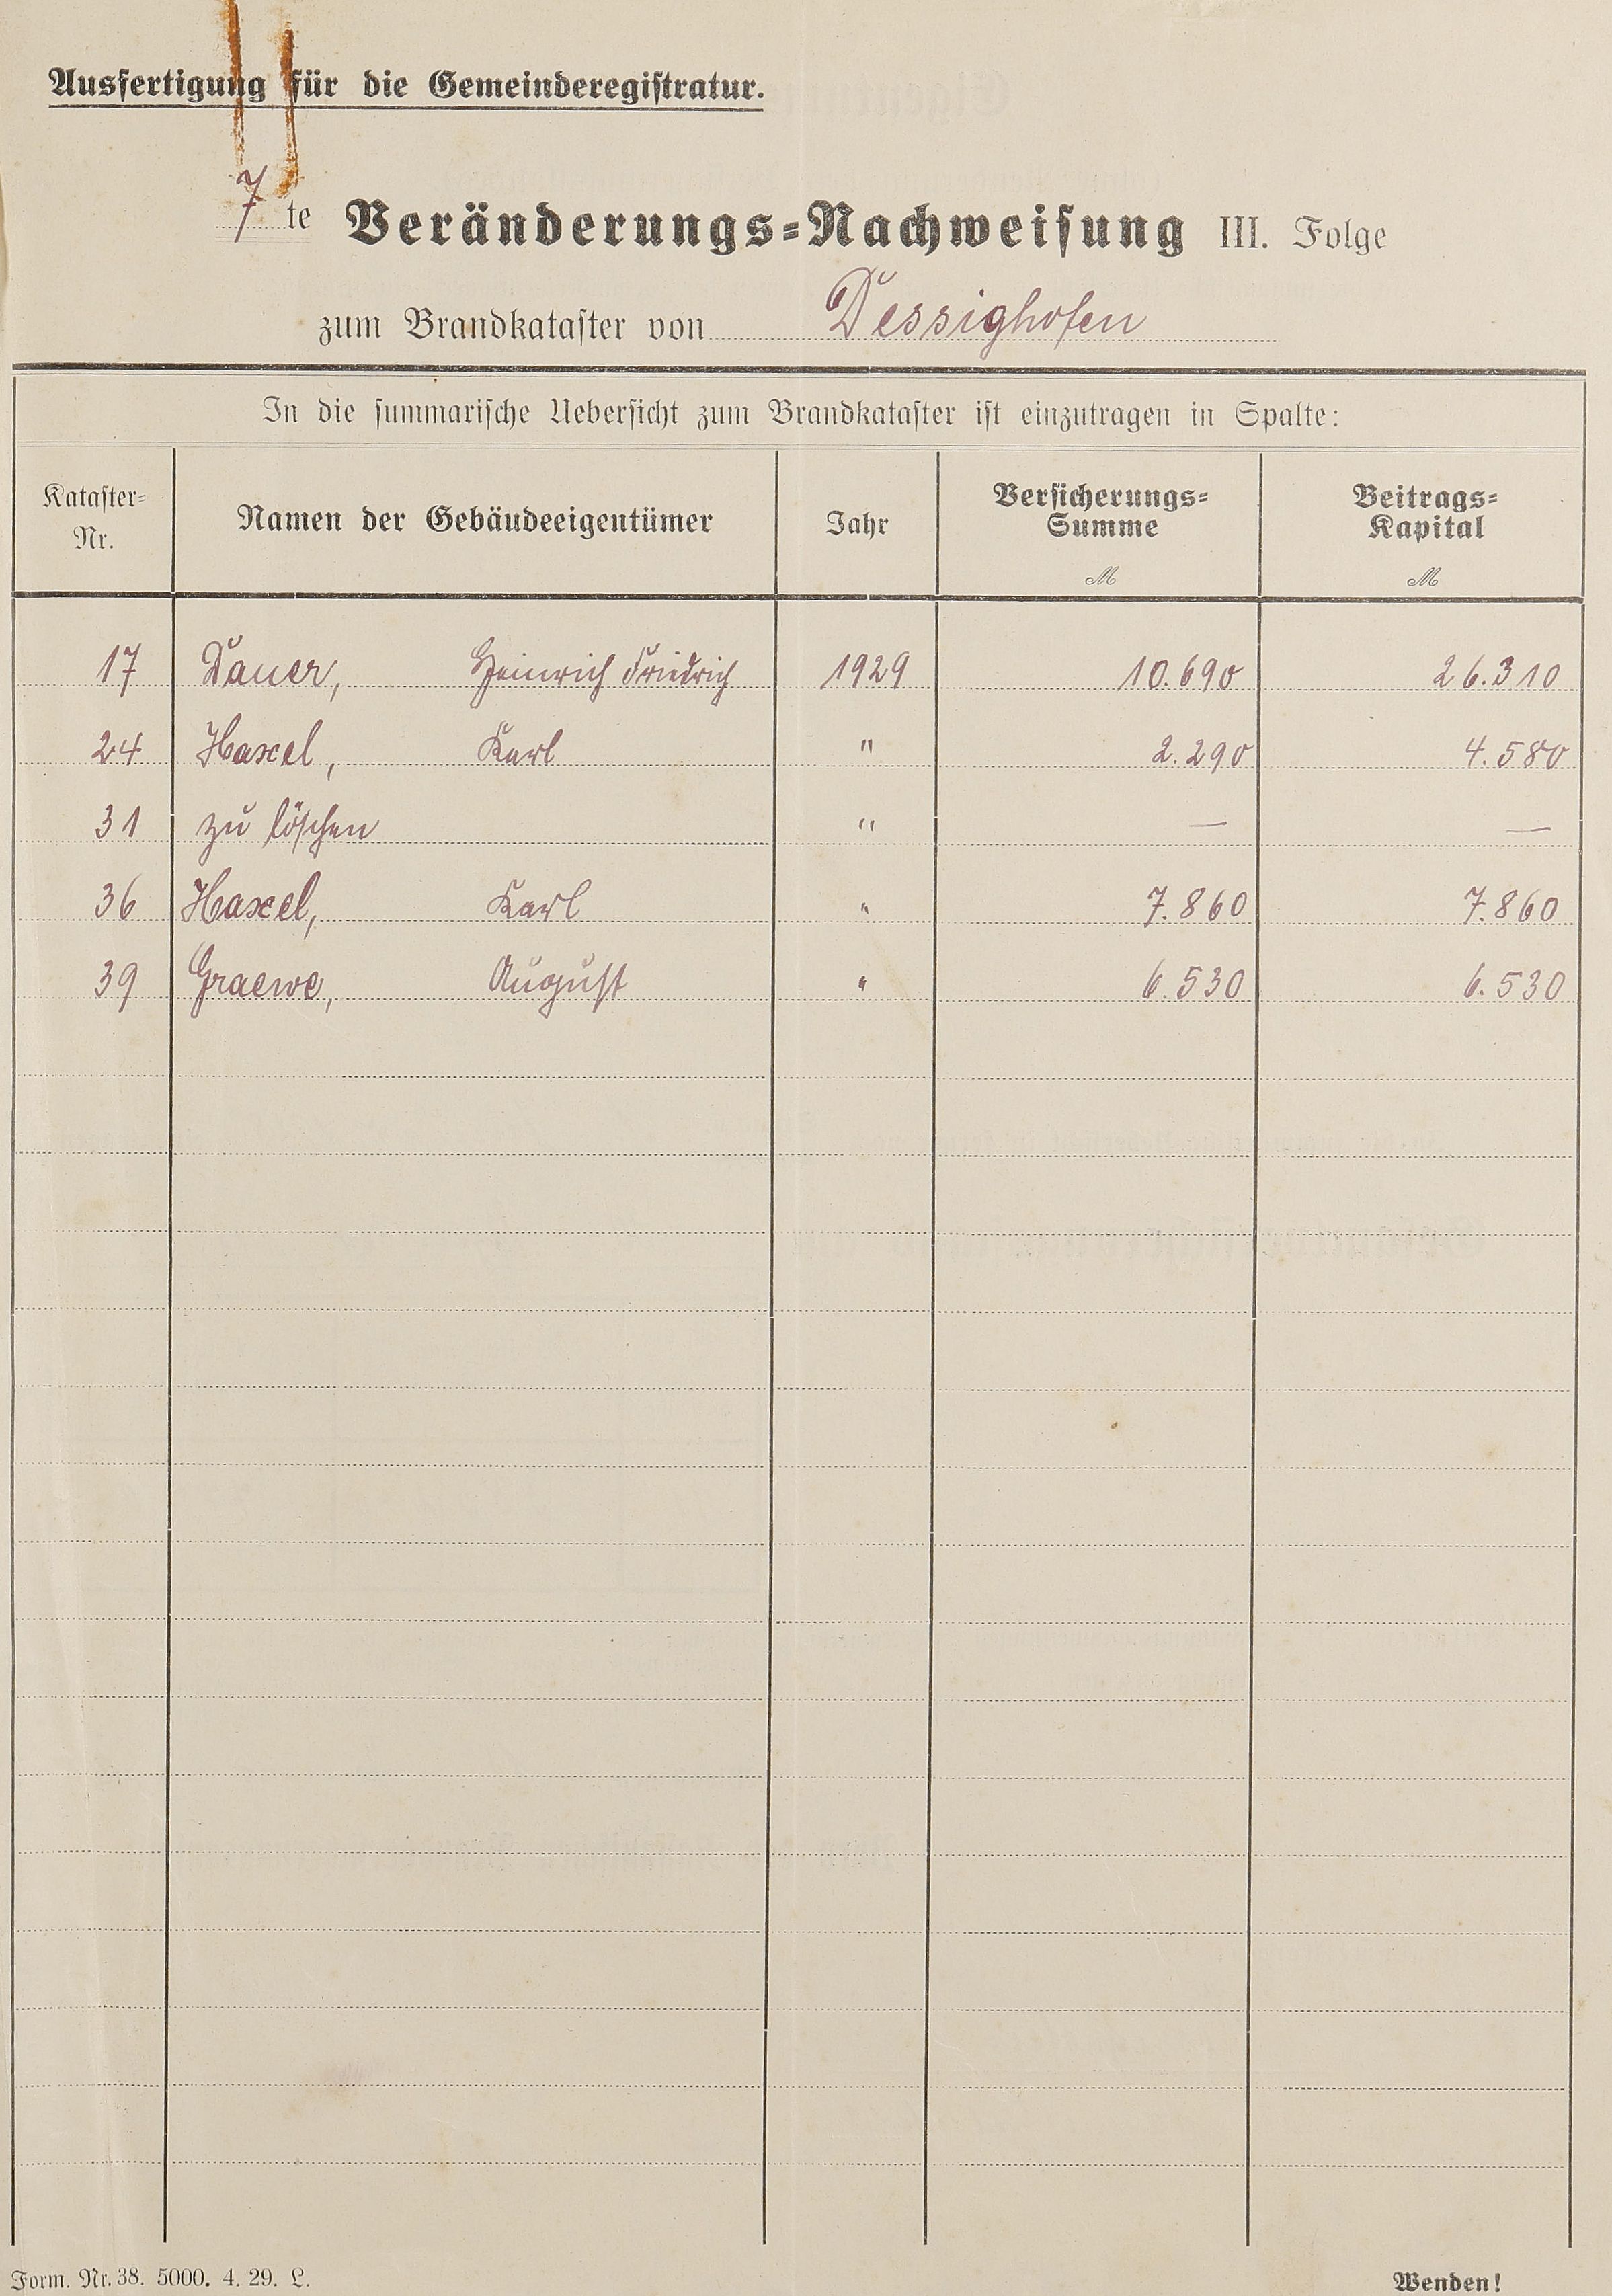 Ausfertigung für die Gemeinderegistratur.
7 te Veränderungs-Nachweisung III. Folge
zum Brandkataster von Dessighofen
In die summarische Uebersicht zum Brandkataster ist einzutragen in Spalte:
Kataster-Nr. Namen der Gebäudeeigentümer Jahr Versicherungs-Summe M Beitrags-Kapital M
17 Dauer, Heinrich Friedrich 1929 10.690 26.310
24 Haxel, Karl " 2.290 4.580
31 zu löschen " — —
36 Haxel, Karl " 7.860 7.860
39 Graewe, August " 6.530 6.530
Form. Nr. 38. 5000. 4. 29. L. Wenden!